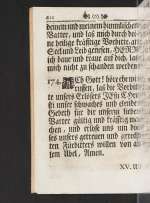 deinem und meinem himmlischen
Vatter, und laß mich durch dei-
ne heilige kräfftige Vorbitte an
Seel und Leib genesen. HERR
ich baue und traue auf dich, laß
mich nicht zu schanden werden.
174. ACh Gott! höre ehe wir
ruffen, laß die Vorbit-
te unsers Erlösers JEsu Christi
für unser schwaches und elendes
Gebeth für dir unserm lieben
Vatter gültig und kräfftig ma-
chen, und erlöse uns um des-
ses unsers getreuen und gerechten
Fürbitters willen von al-
lem Übel, Amen.
XV. U